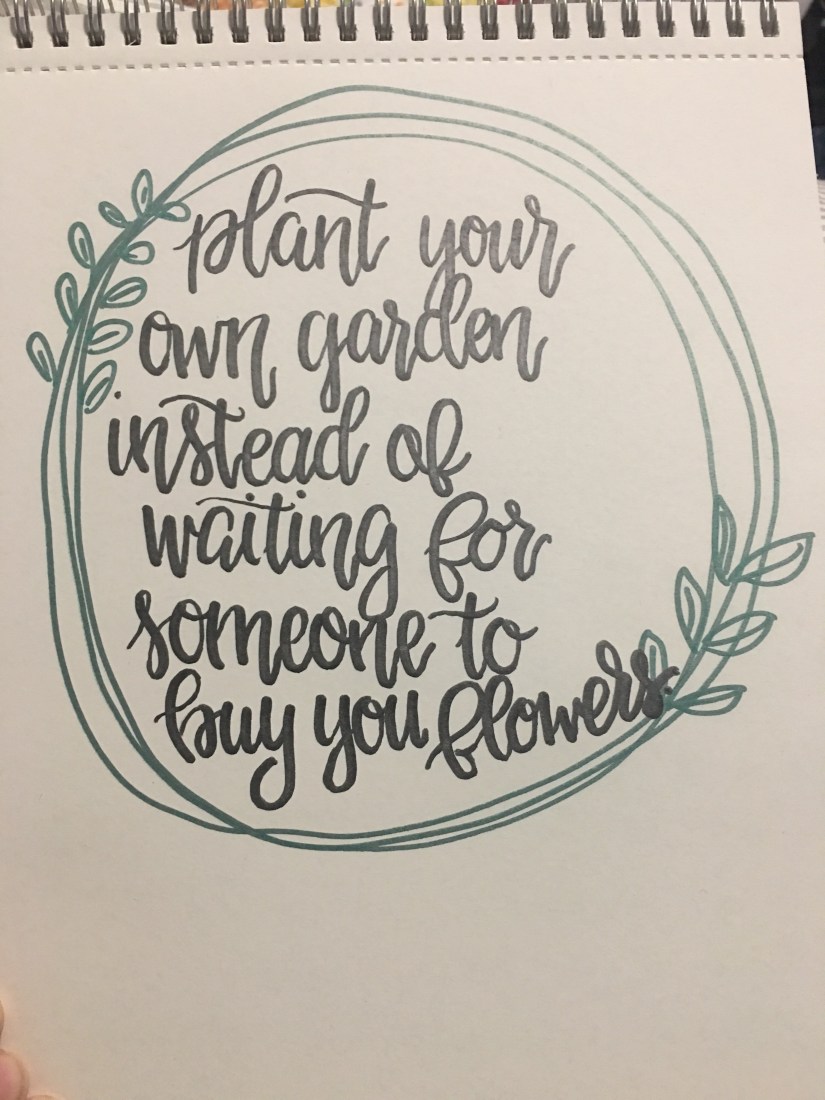 plant your
own garden
instead of
waiting for
someone to
buy you flowers.